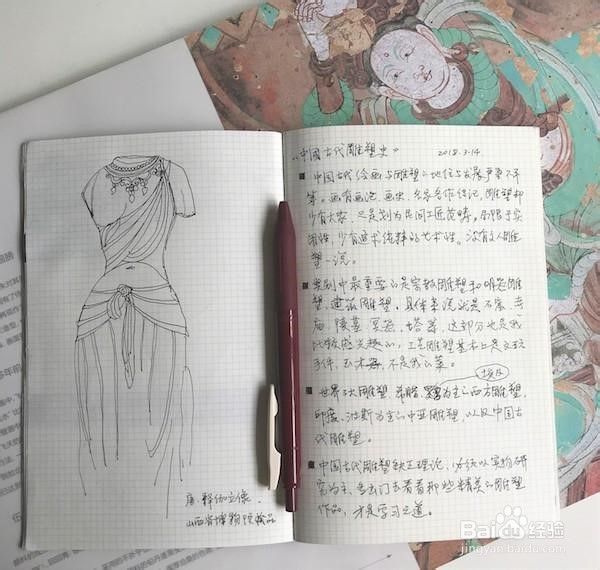 唐·释伽立像。
山西省博物院藏品
《中国古代雕塑史》 2018.3.14
中国古代绘画与雕塑的地位与发展严重不
等。画有画论、画史,名家名作传记,雕塑却
少有大家,只是划为民间工匠范畴,局限于实
用性,少有追求纯粹的艺术性。没有文人雕
塑一说。
类别中最重要的是宗教雕塑和明器雕
塑,建筑雕塑,具体来说就是石窟、寺
庙、陵墓、冥器、塔等,这部分也是我
比较感兴趣的,工艺雕塑基本上是文玩
手件,玉木,不是我的菜。
埃及
世界3大雕塑,希腊、为主的西方雕塑,
印度、波斯为主的中亚雕塑,以及中国古
代雕塑。
中国古代雕塑缺乏理论,必须以实物研
究为主,多出门去看看那些精美的雕塑
作品,才是学习之道。
Baidu经验
jingyan.baidu.com